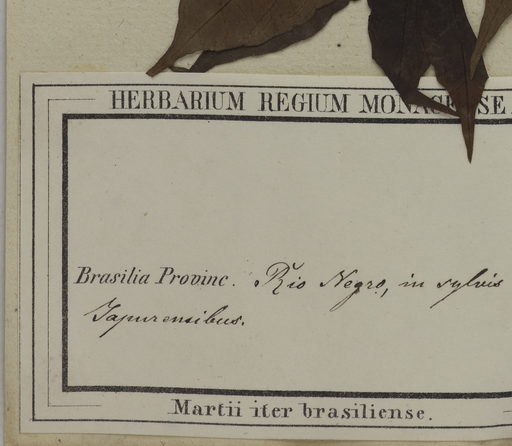 HERBARIUM REGIUM MONACENSE.
Brasilia Provinc. Rio Negro, in sylvis
Japurensibus.
Martii iter brasiliense.